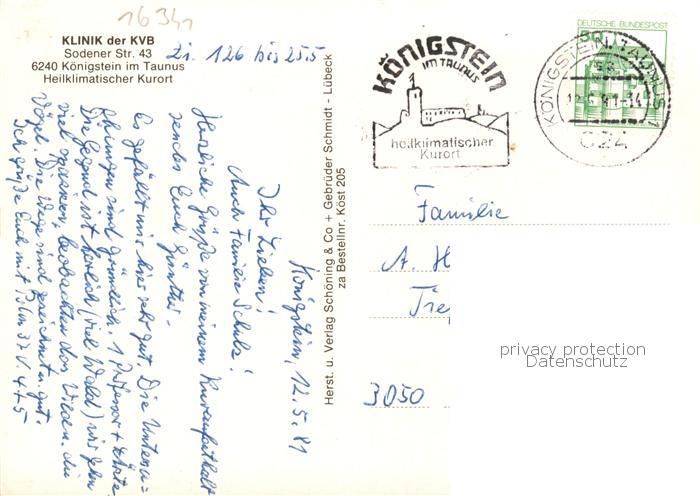 16341
KLINIK der KVB
Sodener Str. 43
6240 Königstein im Taunus
Heilklimatischer Kurort
Zi. 126 bis 25.5
Königstein, 12.5.81
Ihr Lieben!
Auch Familie Schulz!
Herzliche Grüße von meinem Kuraufenthalt
sendet Euch Günter -
Es gefällt mir hier sehr gut. Die Untersu=
chungen sind gründlich. 1 Professor + Ärzte.
Die Gegend ist herrlich (viel Wald) wir gehn
viel spazieren, beobachten das Wild u. die
Vögel. Die Wege sind gezeichnet u. gut.
Ich grüße Euch mit
Herst. u. Verlag Schöning & Co + Gebrüder Schmidt - Lübeck
za Bestellnr. Köst 205
KÖNIGSTEIN
IM TAUNUS
heilklimatischer
Kurort
DEUTSCHE BUNDESPOST
50
KÖNIGSTEIN, TAUNUS 1
624
Familie
A. H
Tre
3050
privacy protection
Datenschutz